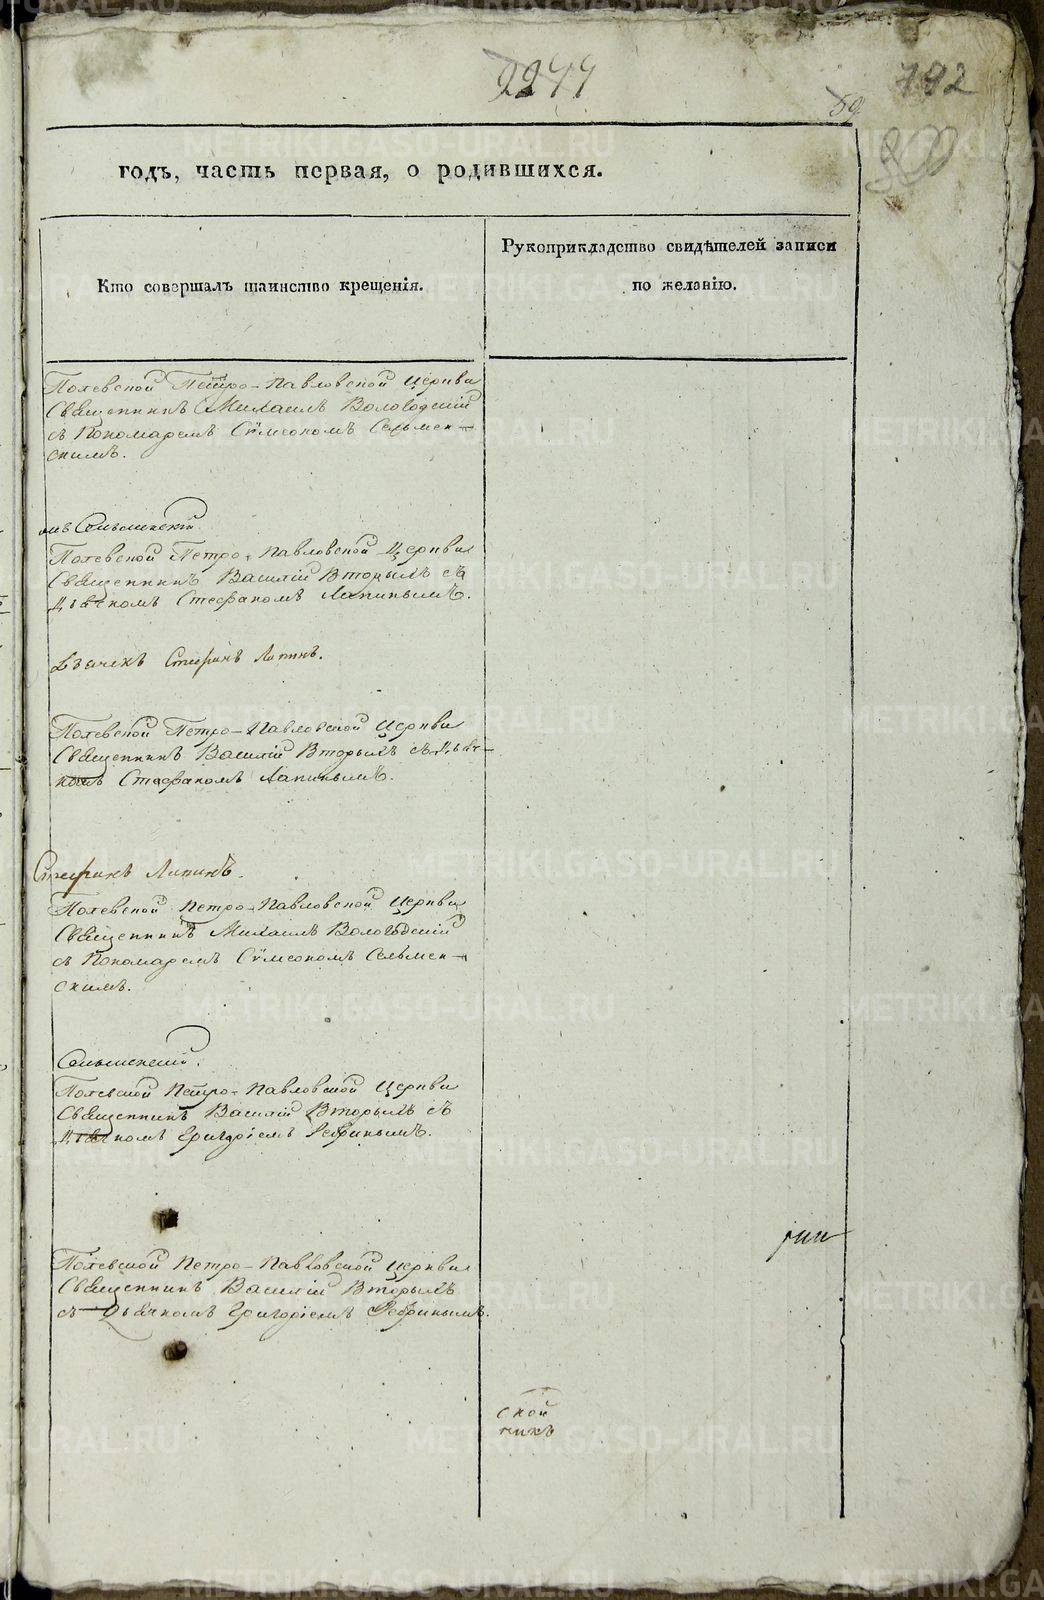 2244
792
59
годъ, часть первая, о родившихся.
Кто совершалъ таинство крещенія.
Рукоприкладство свидѣтелей записи
по желанію.
Полевской Петро-Павловской Церкви
Священникъ Михаилъ Вологодскій
съ Пономаремъ Сѵмеономъ Сельмен-
скимъ.
Полевской Петро-Павловской Церкви
Священникъ Василій Вторыхъ съ
Дьячкомъ Стефаномъ Лапинымъ.
Дьячекъ Стефанъ Лапинъ.
Полевской Петро-Павловской Церкви
Священникъ Василій Вторыхъ съ Дьяч-
комъ Стефаномъ Лапинымъ.
Стефанъ Лапинъ.
Полевской Петро-Павловской Церкви
Священникъ Михаилъ Вологодскій
съ Пономаремъ Сѵмеономъ Сельмен-
скимъ.
Полевской Петро-Павловской Церкви
Священникъ Василій Вторыхъ съ
Дьячкомъ Григоріемъ
Полевской Петро-Павловской Церкви
Священникъ Василій Вторыхъ
съ Дьячкомъ Григоріемъ
ской
никъ
METRIKI.GASO-URAL.RU